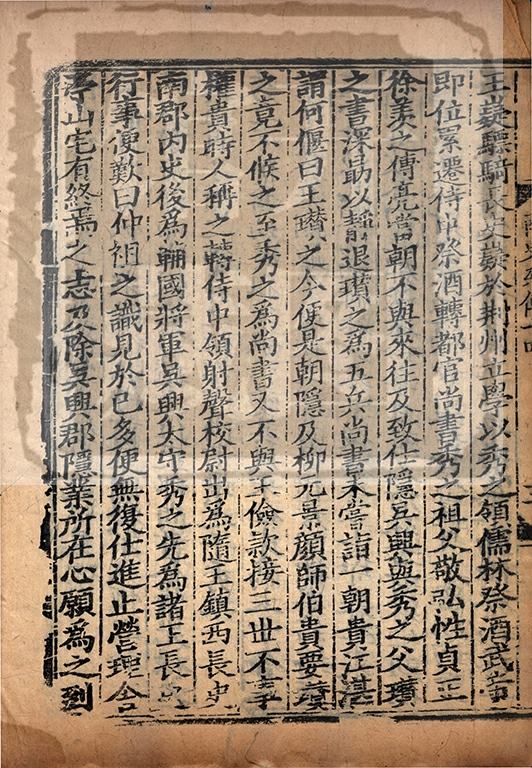 王嶷驃騎長史嶷於荆州立學以秀之領儒林祭酒武帝
即位累遷侍中祭酒轉都官尚書秀之祖父敬弘性貞正
徐羨之傅亮當朝不與來往及致仕隱吳興與秀之父瓚
之書深勗以靜退瓚之爲五兵尚書未嘗詣一朝貴江湛
謂何偃曰王瓚之今便是朝隱及柳元景顔師伯貴要瓚
之竟不候之至秀之爲尚書又不與王儉款接三世不事
權貴時人稱之轉侍中領射聲校尉出爲隨王鎮西長史
南郡内史後爲輔國將軍吳興太守秀之先爲諸王長史
行事便歎曰仲祖之識見於已多便無復仕進止營理舍
亭山宅有終焉之志乃除吳興郡隱業所在心願爲之到